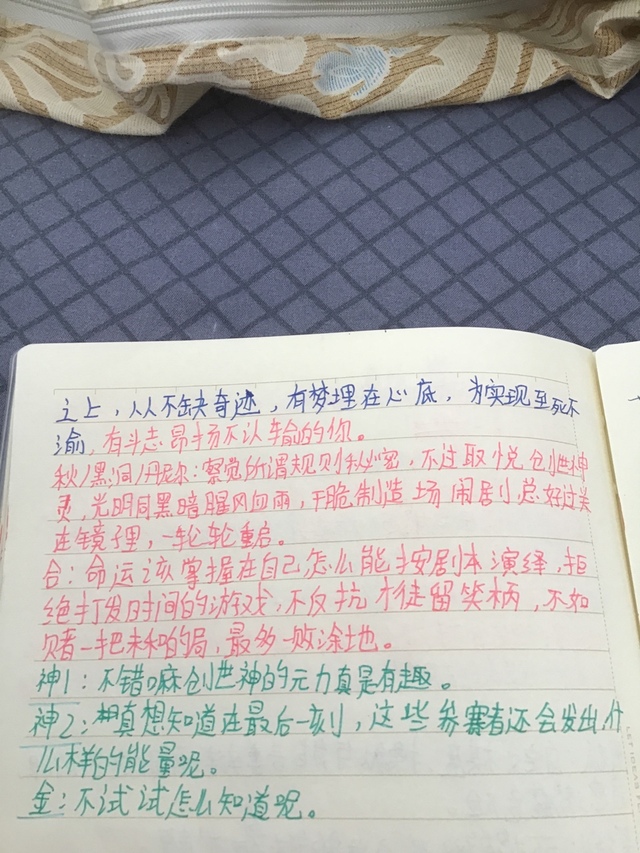 之上，从不缺奇迹，有梦埋在心底，为实现至死不
渝，有斗志昂扬不认输的你。
秋/黑洞/丹尼尔：察觉所谓规则秘密，不过取悦创世神
灵，光明同黑暗腥风血雨，干脆制造场闹剧总好过关
在镜子里，一轮轮重启。
合：命运该掌握在自己怎么能按剧本演绎，拒
绝打发时间的游戏，不反抗才徒留笑柄，不如
赌一把未知的局，最多一败涂地。
神1：不错嘛创世神的元力真是有趣。
神2：真想知道在最后一刻，这些参赛者还会发出什
么样的能量呢。
金：不试试怎么知道呢。